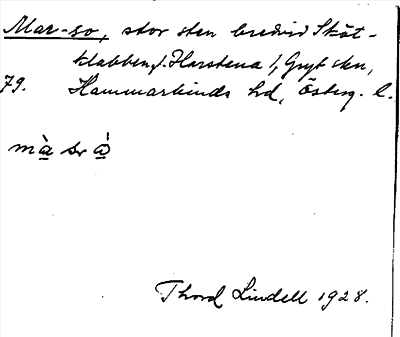 Mar-so, stor sten bredvid Sköt-
klabben, /. Harstena 1, Gryt skn,
79. Hammarkinds hd, Österg. l.
Thord Lindell 1928.